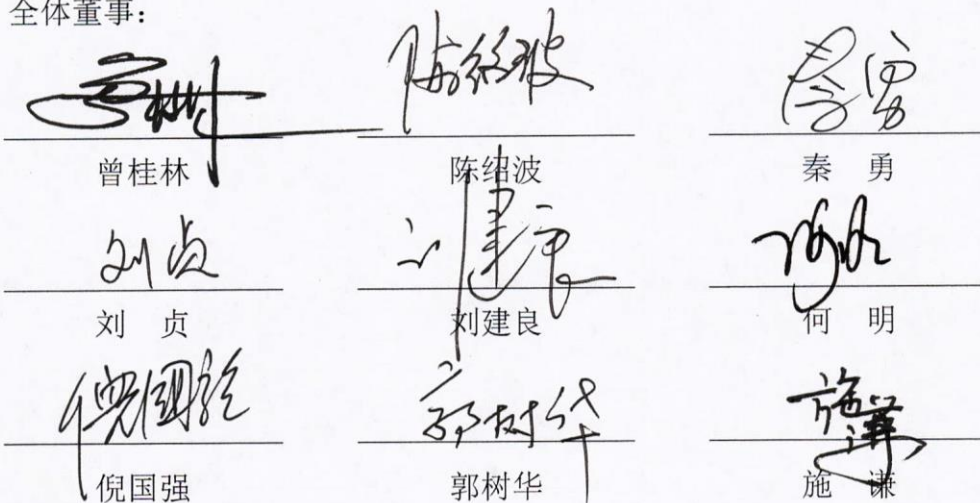 全体董事：
曾桂林 陈绍波 秦勇
刘贞 刘建良 何明
刘贞 刘建良 何明
倪国强 郭树华 施谦
倪国强 郭树华 施谦